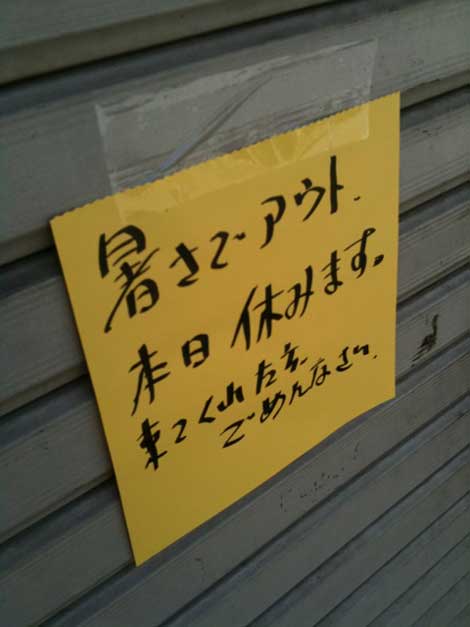 暑さでアウト.
本日 休みます。
来てくれた方、
ごめんなさい.